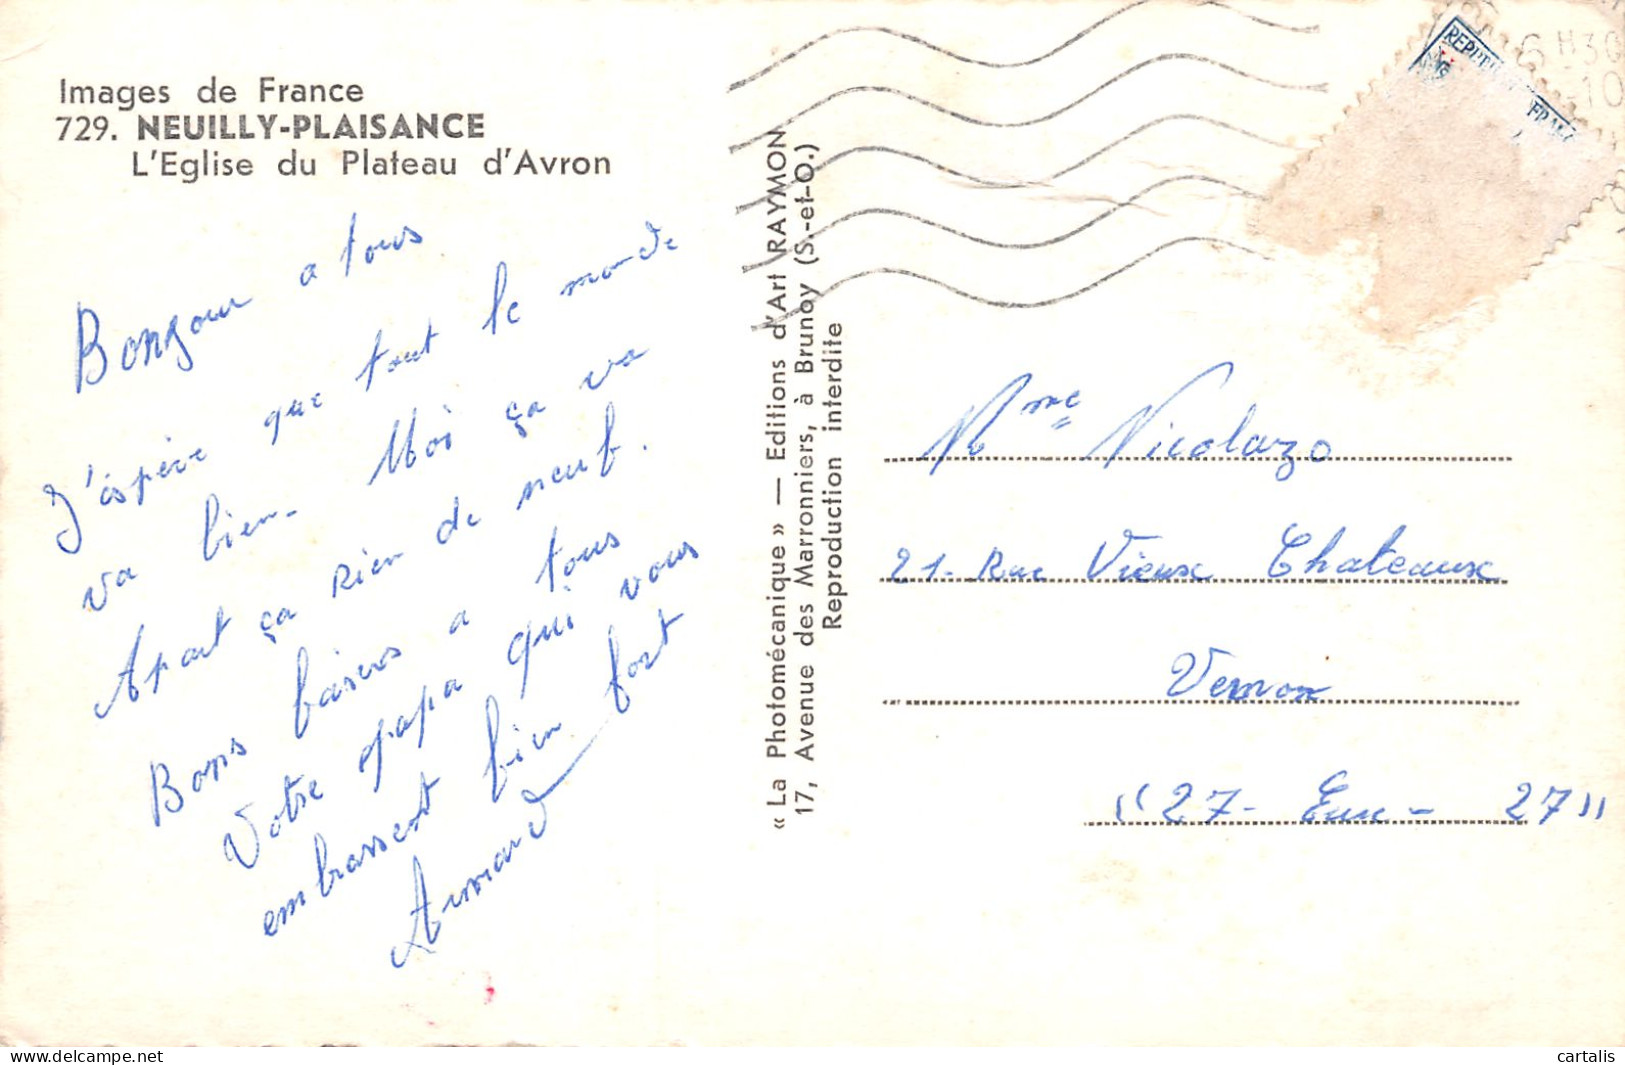 Images de France
729. NEUILLY-PLAISANCE
L'Eglise du Plateau d'Avron
Bonjour a tous
J'éspère que tout le monde
va bien - Moi ça va
Apart ça rien de neuf.
Bons baisers a tous
Votre papa qui vous
embrassent bien fort
Armand
« La Photomécanique » — Editions d'Art RAYMON
17, Avenue des Marronniers, à Brunoy (S.-et-O.)
Reproduction interdite
6 H 30
-10
Mme Nicolazo
21 - Rue Vieux Chateaux
Vernon
"27 - Eure - 27"
delcampe.net
cartalis